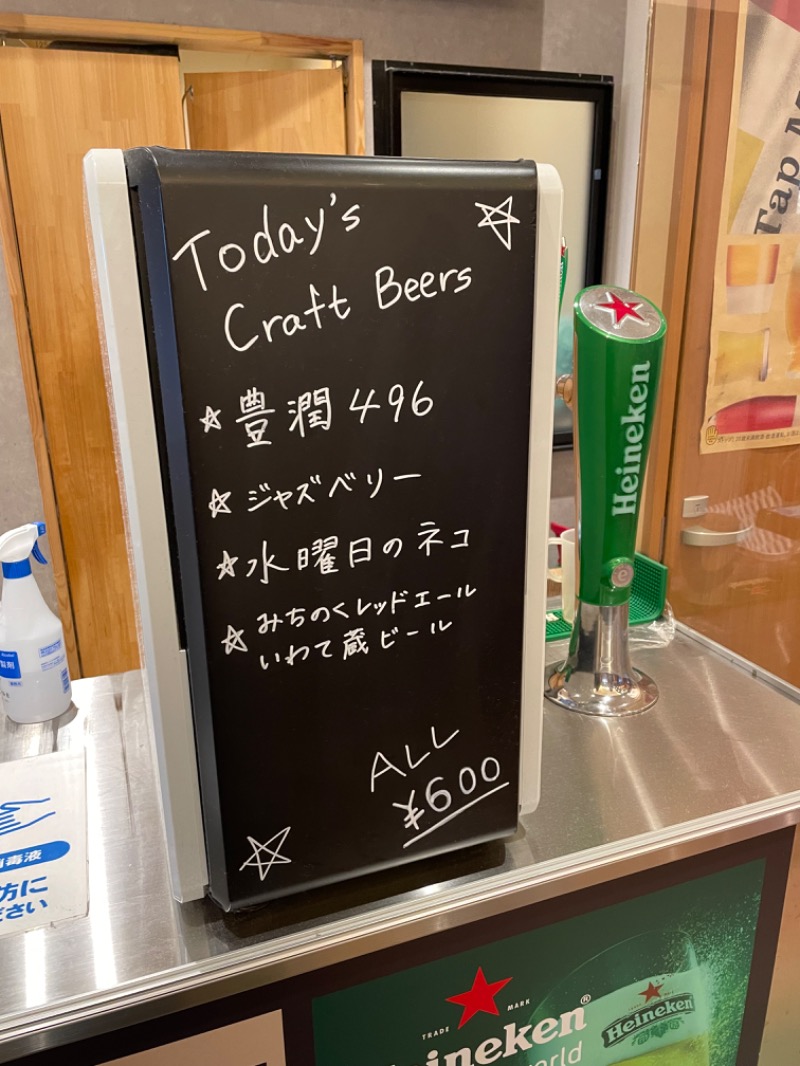 Today's
Craft Beers
☆ 豊潤 496
☆ ジャズベリー
☆ 水曜日のネコ
☆ みちのくレッドエール
いわて蔵ビール
ALL
¥600
Heineken
Tap M
方に
ださい
TRADE MARK
Heineken®
Heineken